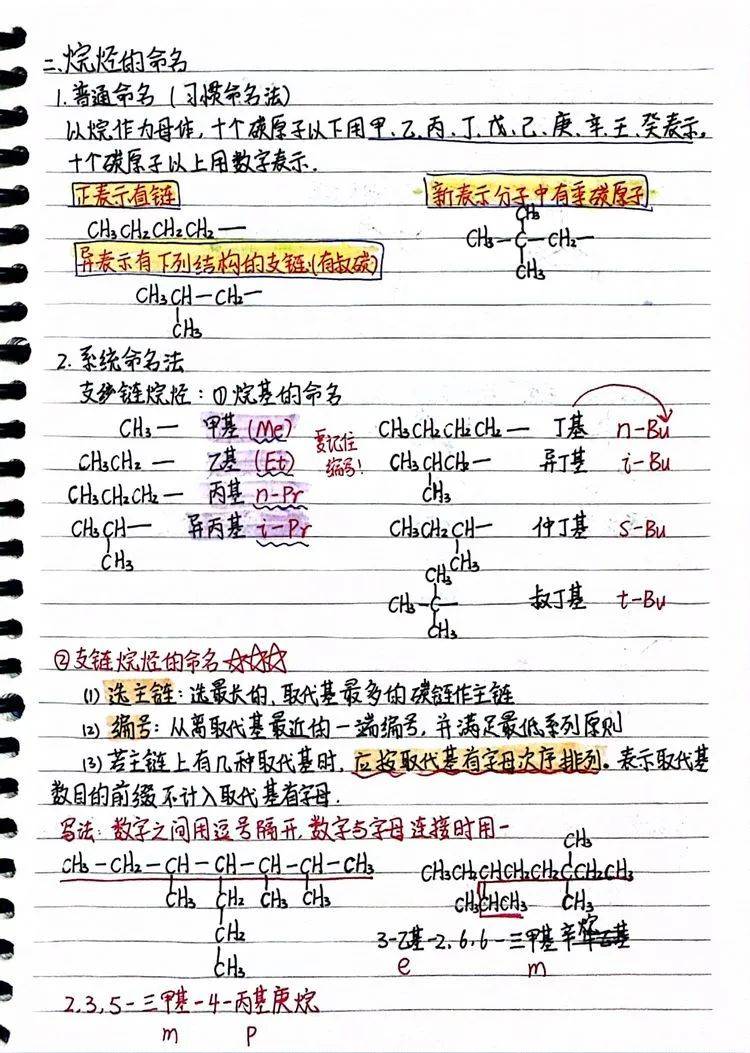 二、烷烃的命名
1.普通命名(习惯命名法)
以烷作为母体,十个碳原子以下用甲、乙、丙、丁、戊、己、庚、辛、壬、癸表示。
十个碳原子以上用数字表示.
正表示直链 新表示分子中有季碳原子
CH3CH2CH2CH2— CH3
CH3—C—CH2—
异表示有下列结构的支链(有叔碳) CH3
CH3CH—CH2—
CH3
2.系统命名法
支链烷烃:①烷基的命名
CH3— 甲基(Me) 要记住 CH3CH2CH2CH2— 丁基 n-Bu
CH3CH2— 乙基(Et) 编号! CH3CHCH2— 异丁基 i-Bu
CH3CH2CH2— 丙基 n-Pr CH3
CH3CH— 异丙基 i-Pr CH3CH2CH— 仲丁基 s-Bu
CH3 CH3
CH3
CH3—C— 叔丁基 t-Bu
CH3
②支链烷烃的命名☆☆☆
(1)选主链:选最长的,取代基最多的碳链作主链
(2)编号:从离取代基最近的一端编号,并满足最低系列原则
(3)若主链上有几种取代基时,应按取代基首字母次序排列。表示取代基
数目的前缀不计入取代基首字母.
写法:数字之间用逗号隔开,数字与字母连接时用-
CH3
CH3—CH2—CH—CH—CH—CH—CH3 CH3CH2CHCH2CH2CCH2CH3
CH3 CH2 CH3 CH3 CH3CHCH3 CH3
CH2 3-乙基-2,6,6-三甲基辛烷
CH3 e m
2,3,5-三甲基-4-丙基庚烷
m p